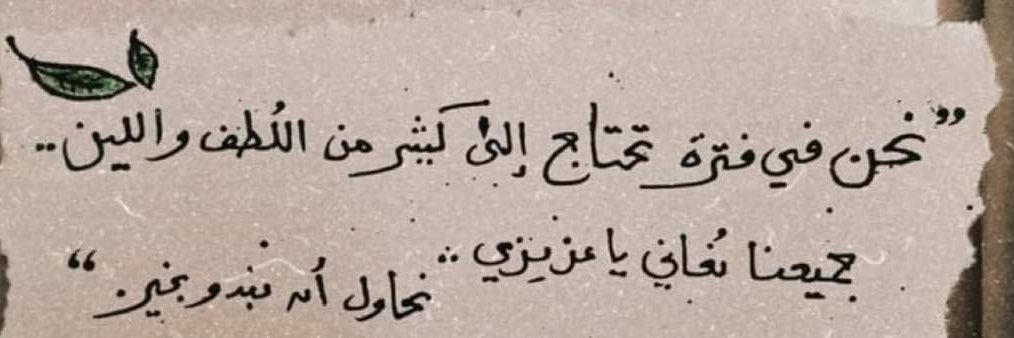 ”نحن في فترة تحتاج إلى كثير من اللُطف واللين..
جميعنا نُعاني يا عزيزي.. نحاول أن نبدو بخير.“